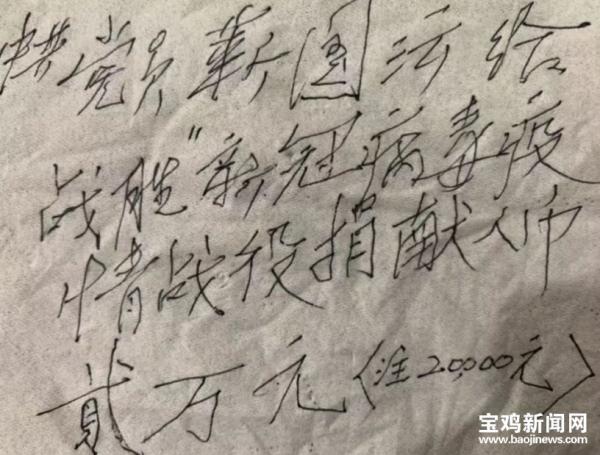 中共党员靳国沄给
战胜"新冠病毒疫
情战役捐献人币
贰万元(注20,000元)
宝鸡新闻网
www.baojinews.com